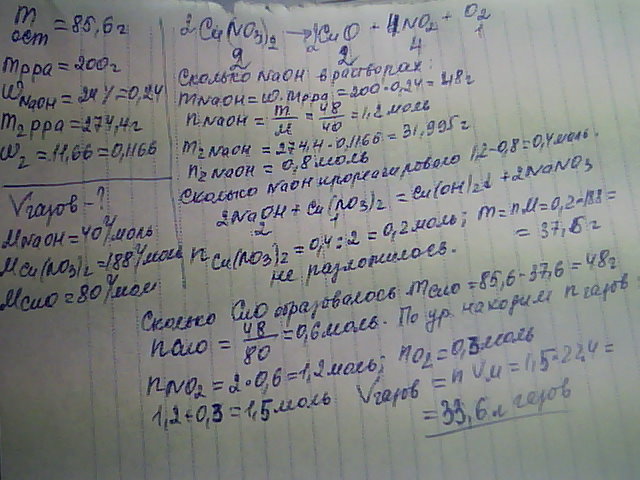 m ост = 85,6 г
m рра = 200 г
W NaOH = 24% = 0,24
m₂ рра = 274,4 г
W₂ = 11,66 = 0,1166
Vгазов - ?
M NaOH = 40 г/моль
M Cu(NO₃)₂ = 188 г/моль
M CuO = 80 г/мол
2Cu(NO₃)₂ → 2CuO + 4NO₂ + O₂
2 2 4 1
Сколько NaOH в растворах:
m NaOH = W · m рра = 200 · 0,24 = 48 г
n NaOH = m/M = 48/40 = 1,2 моль
m₂ NaOH = 274,4 · 0,1166 = 31,995 г
n₂ NaOH = 0,8 моль
Сколько NaOH прореагировало 1,2 - 0,8 = 0,4 моль.
2NaOH + Cu(NO₃)₂ = Cu(OH)₂↓ + 2NaNO₃
2 1
n Cu(NO₃)₂ = 0,4 : 2 = 0,2 моль; m = nM = 0,2 · 188 =
= 37,6 г
не разложилось.
Сколько CuO образовалось m CuO = 85,6 - 37,6 = 48 г
n CuO = 48/80 = 0,6 моль. По ур. находим n газов:
n NO₂ = 2 · 0,6 = 1,2 моль; n O₂ = 0,3 моль
1,2 + 0,3 = 1,5 моль Vгазов = n Vм = 1,5 · 22,4 =
= 33,6 л газов